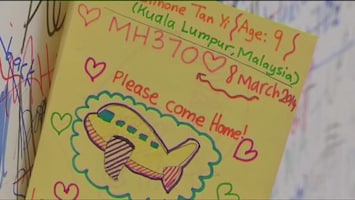 Tan Yi {Age: 9}
(Kuala Lumpur, Malaysia)
MH370
8 March 2014
Please come Home!